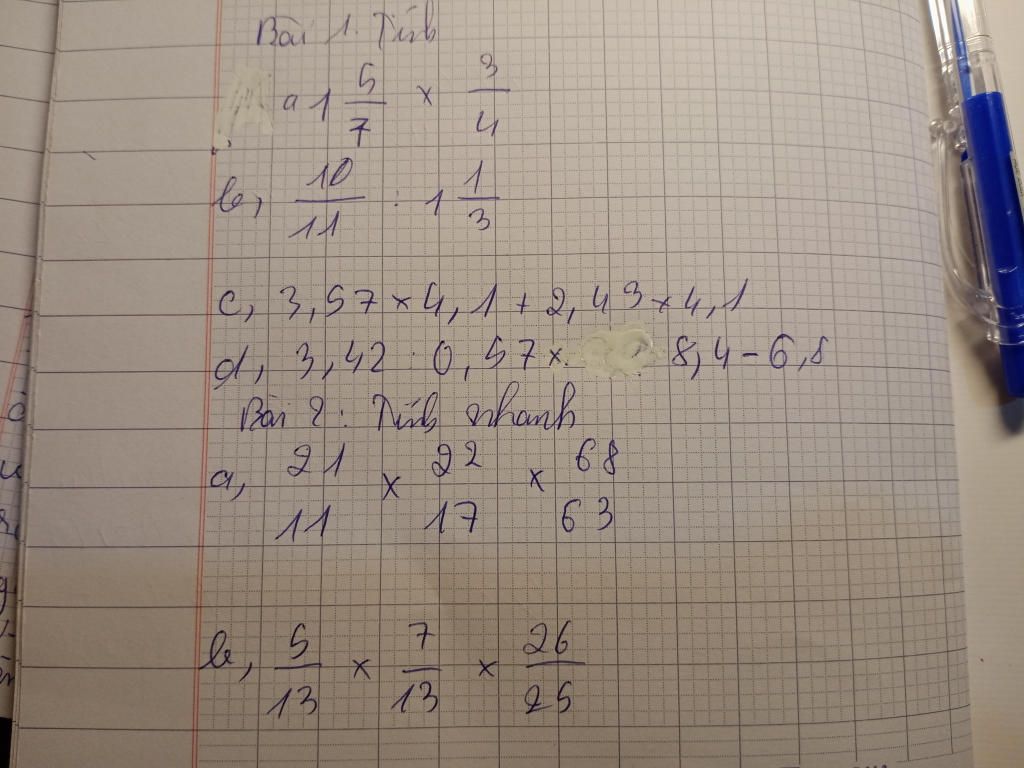 Bài 1. Tính
a 1 5/7 × 3/4
b, 10/11 : 1 1/3
c, 3,57 × 4,1 + 2,43 × 4,1
d, 3,42 : 0,57 × 8,4 - 6,8
Bài 2: Tính nhanh
a, 21/11 × 22/17 × 68/63
b, 5/13 × 7/13 × 26/25